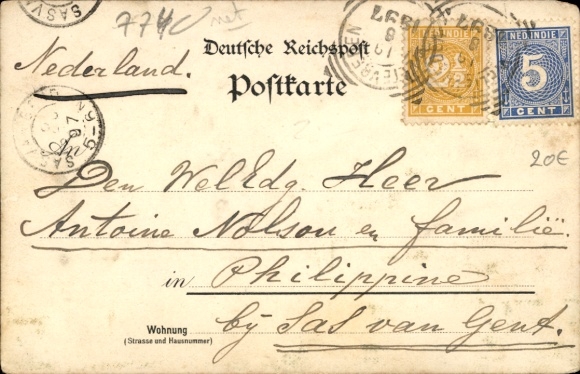 7740 net
Deutsche Reichspost
Postkarte
Nederland.
NED.INDIE
CENT
NED.INDIE
5
CENT
1897
20€
Den WelEdg. Heer
Antoine Nolson en familië.
in Philippine
Wohnung
(Strasse und Hausnummer)
bÿ Sas van Gent.